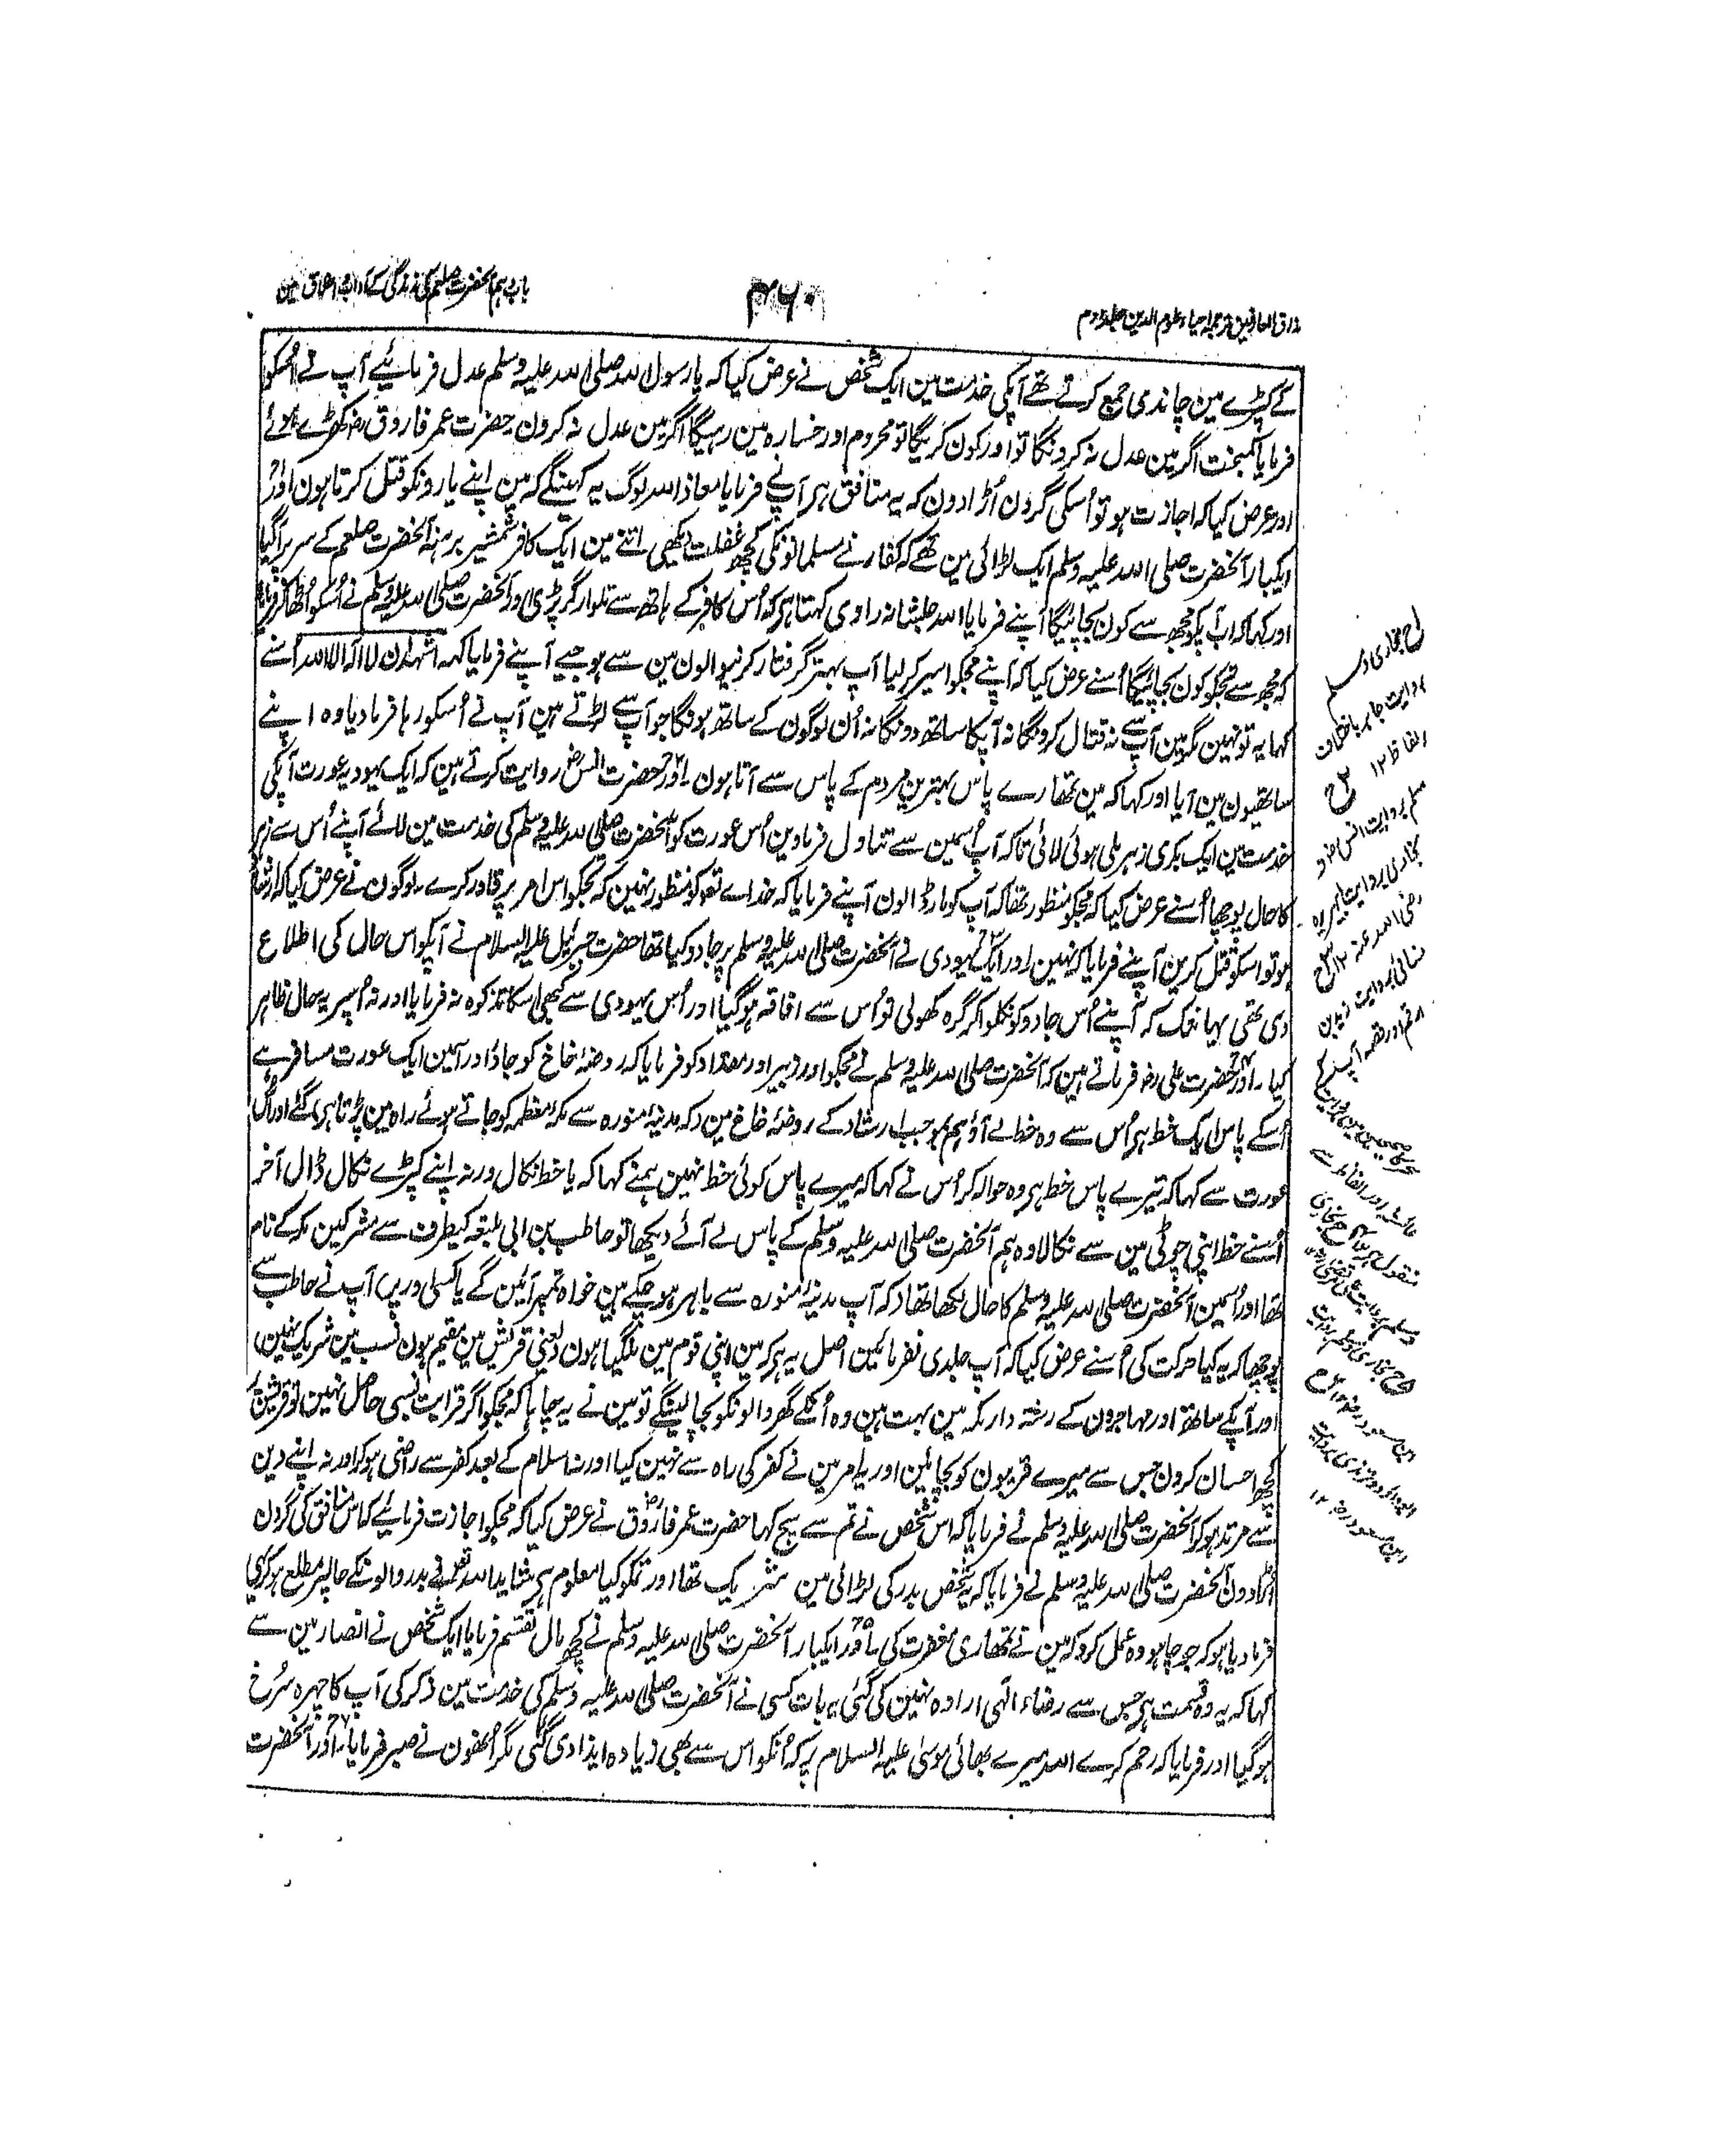 مذاق العارفین ترجمہ احیاء علوم الدین جلد دوم
۴۶۰
باب دہم آنحضرت صلعم کی زندگی کے آداب و اخلاق مین
کے کپڑے مین چاندی جمع کرتے تھے آپکی خدمت مین ایک شخص نے عرض کیا کہ یا رسول اللہ صلی اللہ علیہ وسلم عدل فرمائیے آپ نے اُسکو
فرمایا کمبخت اگر مین عدل نہ کرونگا تو اور کون کریگا تو محروم اور خسارہ مین رہیگا اگر مین عدل نہ کرون حضرت عمر فاروق رضہ کھڑے ہوئے
اور عرض کیا کہ اجازت ہو تو اُسکی گردن اُڑا دون کہ یہ منافق ہی آپنے فرمایا معاذ اللہ لوگ یہ کہینگے کہ مین اپنے یارونکو قتل کرتا ہون اور
ایکبار آنحضرت صلی اللہ علیہ وسلم ایک لڑائی مین تھے کہ کفار نے مسلمانونکی کچھ غفلت دیکھی اتنے مین ایک کافر شمشیر برہنہ آنحضرت صلعم کے سر پر آگیا
اور کہا کہ اب آپکو مجھ سے کون بچائیگا آپنے فرمایا اللہ جلشانہ راوی کہتا ہی کہ اُس کافر کے ہاتھ سے تلوار گر پڑی اور آنحضرت صلی اللہ علیہ وسلم نے اُسکو اُٹھا کر فرمایا
کہ مجھ سے تجھکو کون بچائیگا اُسنے عرض کیا کہ آپنے مجکو اسیر کر لیا آپ بہتر گرفتار کرنیوالون مین سے ہوجیے آپنے فرمایا کہہ اشہد ان لا الہ الا اللہ اُسنے
کہا یہ تو نہین مگر مین آپ سے نہ قتال کرونگا نہ آپکا ساتھ دونگا نہ اُن لوگون کے ساتھ ہونگا جو آپ سے لڑتے ہین آپ نے اُسکو رہا فرما دیا وہ اپنے
ساتھیون مین آیا اور کہا کہ مین تمھارے پاس بہترین مردم کے پاس سے آتا ہون۔ اور حضرت انس رض روایت کرتے ہین کہ ایک یہودیہ عورت آپکی
خدمت مین ایک بکری زہر ملی ہوئی لائی تاکہ آپ اُسمین سے تناول فرماوین اُس عورت کو آنحضرت صلی اللہ علیہ وسلم کی خدمت مین لائے آپنے اُس سے زہر
کا حال پوچھا اُسنے عرض کیا کہ مجکو منظور تھا کہ آپ کو مار ڈالون آپنے فرمایا کہ خداے تعہ کو منظور نہین کہ تجکو اس امر پر قادر کرے۔ لوگون نے عرض کیا کہ ارشاد
ہو تو اسکو قتل کرین آپنے فرمایا کہ نہین اور ایک یہودی نے آنحضرت صلی اللہ علیہ وسلم پر جادو کیا تھا حضرت جبرئیل علیہ السلام نے آپکو اس حال کی اطلاع
دی تھی یہانتک کہ آپنے اُس جادو کو نکلوا کر گرہ کھولی تو اُس سے افاقہ ہوگیا اور اُس یہودی سے کبھی اسکا تذکرہ نہ فرمایا اور نہ اُسپر یہ حال ظاہر
کیا۔ اور حضرت علی رضہ فرماتے ہین کہ آنحضرت صلی اللہ علیہ وسلم نے مجکو اور زبیر اور مقداد کو فرمایا کہ روضۂ خاخ کو جاؤ اور اسمین ایک عورت مسافر ہے
اُسکے پاس ایک خط ہی اُس سے وہ خط لے آؤ ہم بموجب ارشاد کے روضۂ خاخ مین (کہ مدینۂ منورہ سے مکۂ معظمہ کو جاتے ہوئے راہ مین پڑتا ہی) گئے اور اُس
عورت سے کہا کہ تیرے پاس خط ہی وہ حوالہ کر اُس نے کہا کہ میرے پاس کوئی خط نہین ہمنے کہا کہ یا خط نکال ورنہ اپنے کپڑے نکال ڈال آخر
اُسنے خط اپنی چوٹی مین سے نکالا وہ ہم آنحضرت صلی اللہ علیہ وسلم کے پاس لے آئے دیکھا تو حاطب بن ابی بلتعہ کیطرف سے مشرکین مکہ کے نام
تھا اور اُسمین آنحضرت صلی اللہ علیہ وسلم کا حال لکھا تھا (کہ آپ مدینۂ منورہ سے باہر ہو چکے ہین خواہ تمپر آئین گے یا کسی اور پر) آپ نے حاطب سے
پوچھا کہ یہ کیا حرکت کی اُسنے عرض کیا کہ آپ جلدی نفرمائین اصل یہ ہی کہ مین اپنی قوم مین ملگیا ہون (یعنی قریش مین مقیم ہون نسب مین شریک نہین)
اور آپکے ساتھ اور مہاجرون کے رشتہ دار مکہ مین بہت ہین وہ اُنکے گھر والونکو بچا لینگے تو مین نے یہ چاہا کہ مجکو اگر قرابت نسبی حاصل نہین تو قریش پر
کچھ احسان کرون جس سے میرے قریبون کو بچائین اور یہ امر مین نے کفر کی راہ سے نہین کیا اور نہ اسلام کے بعد کفر سے راضی ہو کر اور نہ اپنے دین
سے مرتد ہو کر آنحضرت صلی اللہ علیہ وسلم نے فرمایا کہ اس شخص نے تم سے سچ کہا حضرت عمر فاروق رض نے عرض کیا کہ مجکو اجازت فرمائیے کہ اس منافق کی گردن
اُڑا دون آنحضرت صلی اللہ علیہ وسلم نے فرمایا کہ یہ شخص بدر کی لڑائی مین شریک تھا اور تمکو کیا معلوم ہی شاید اللہ تعہ نے بدر والونکے حال پر مطلع ہو کر
فرما دیا ہو کہ جو چاہو وہ عمل کرو کہ مین نے تمھاری مغفرت کی۔ اور ایکبار آنحضرت صلی اللہ علیہ وسلم نے کچھ مال تقسیم فرمایا ایک شخص نے انصار مین سے
کہا کہ یہ وہ قسمت ہی جس سے رضاء الٰہی ارادہ نہین کی گئی یہ بات کسی نے آنحضرت صلی اللہ علیہ وسلم کی خدمت مین ذکر کی آپ کا چہرہ سُرخ
ہوگیا اور فرمایا کہ رحم کرے اللہ میرے بھائی موسیٰ علیہ السلام پر کہ اُنکو اس سے بھی زیادہ ایذا دی گئی مگر اُنھون نے صبر فرمایا۔ اور آنحضرت
بخاری و مسلم
بروایت جابر باختلاف
الفاظ ۱۲
مسلم بروایت انس رض و
بخاری بروایت ابو ہریرہ
رضی اللہ عنہ ۱۲
نسائی بروایت زید بن
ارقم اور قصہ آپ
عائشہ اور الفاظ سے
منقول ہے ۱۲ بخاری
و مسلم بروایت
بخاری و مسلم بروایت
ابن مسعود رض ۱۲
ابو داؤد و ترمذی بروایت
ابن مسعود رض ۱۲